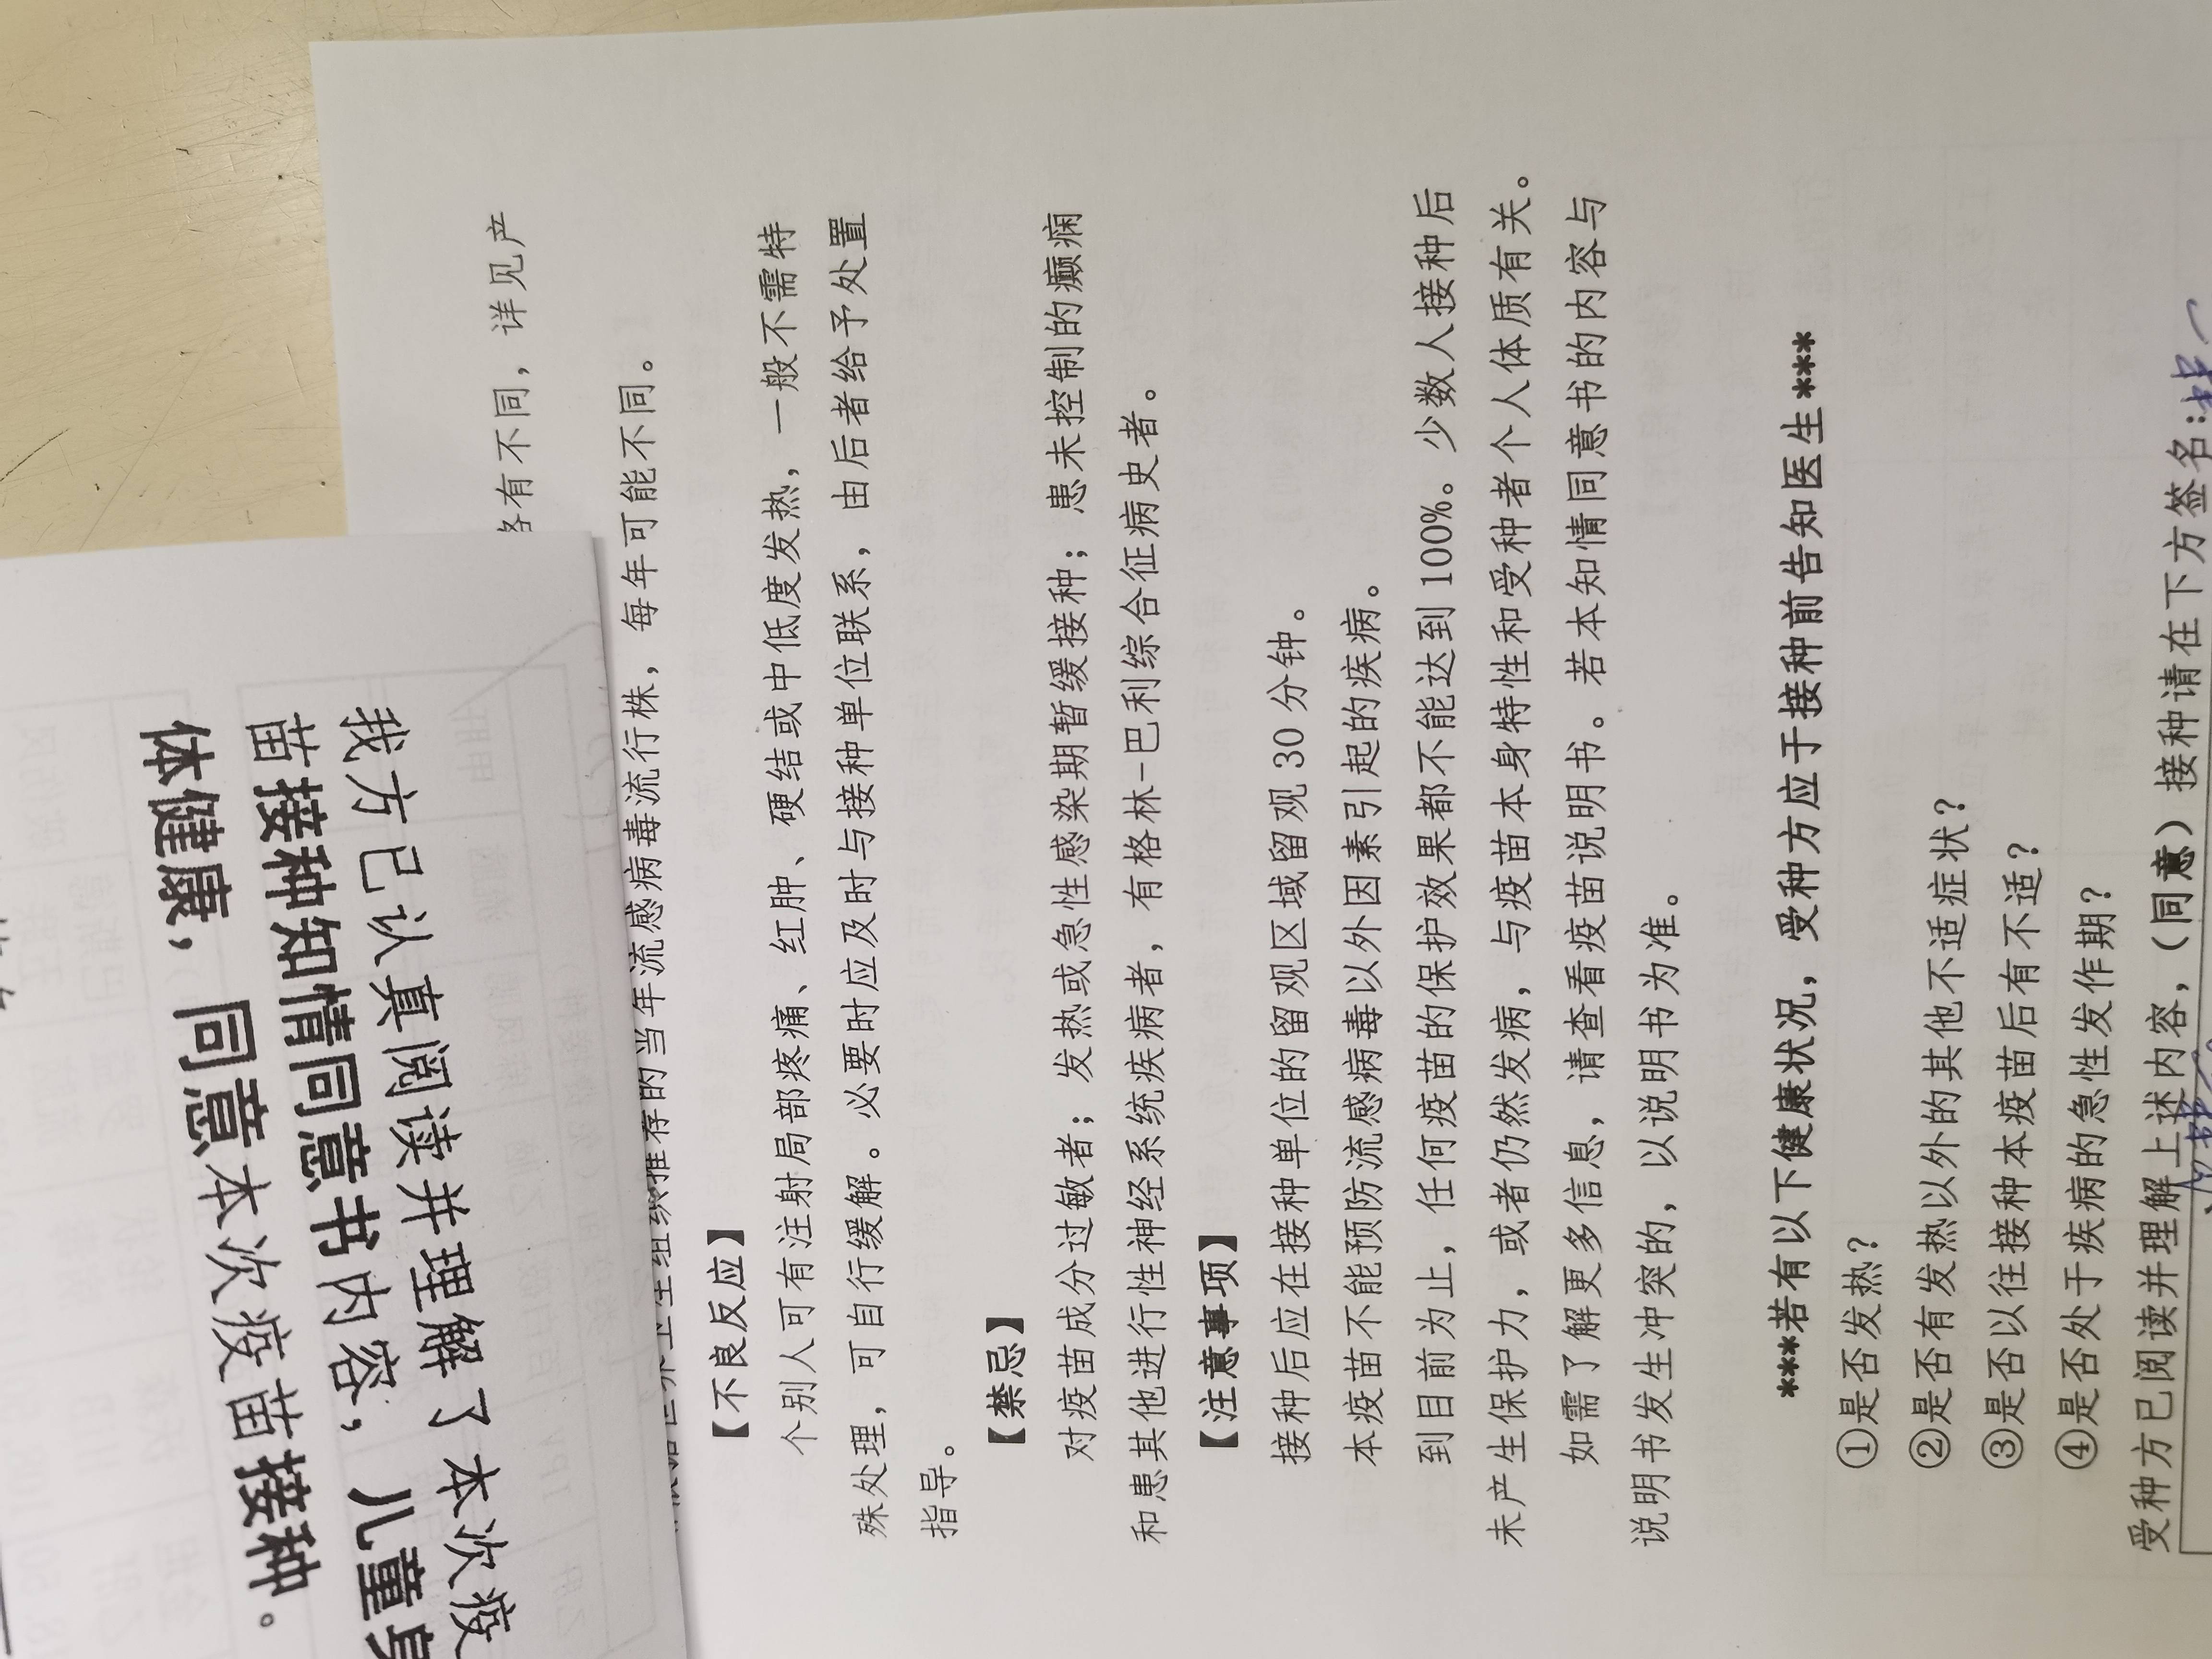 各有不同，详见产
组织推荐的当年流感病毒流行株，每年可能不同。
【不良反应】
个别人可有注射局部疼痛、红肿、硬结或中低度发热，一般不需特
殊处理，可自行缓解。必要时应及时与接种单位联系，由后者给予处置
指导。
【禁忌】
对疫苗成分过敏者；发热或急性感染期暂缓接种；患未控制的癫痫
和患其他进行性神经系统疾病者，有格林-巴利综合征病史者。
【注意事项】
接种后应在接种单位的留观区域留观 30 分钟。
本疫苗不能预防流感病毒以外因素引起的疾病。
到目前为止，任何疫苗的保护效果都不能达到 100%。少数人接种后
未产生保护力，或者仍然发病，与疫苗本身特性和受种者个人体质有关。
如需了解更多信息，请查看疫苗说明书。若本知情同意书的内容与
说明书发生冲突的，以说明书为准。
***若有以下健康状况，受种方应于接种前告知医生****
①是否发热？
②是否有发热以外的其他不适症状？
③是否以往接种本疫苗后有不适？
④是否处于疾病的急性发作期？
受种方已阅读并理解上述内容，（同意）接种请在下方签名:
我方已认真阅读并理解了本次疫
苗接种知情同意书内容，儿童身
体健康，同意本次疫苗接种。